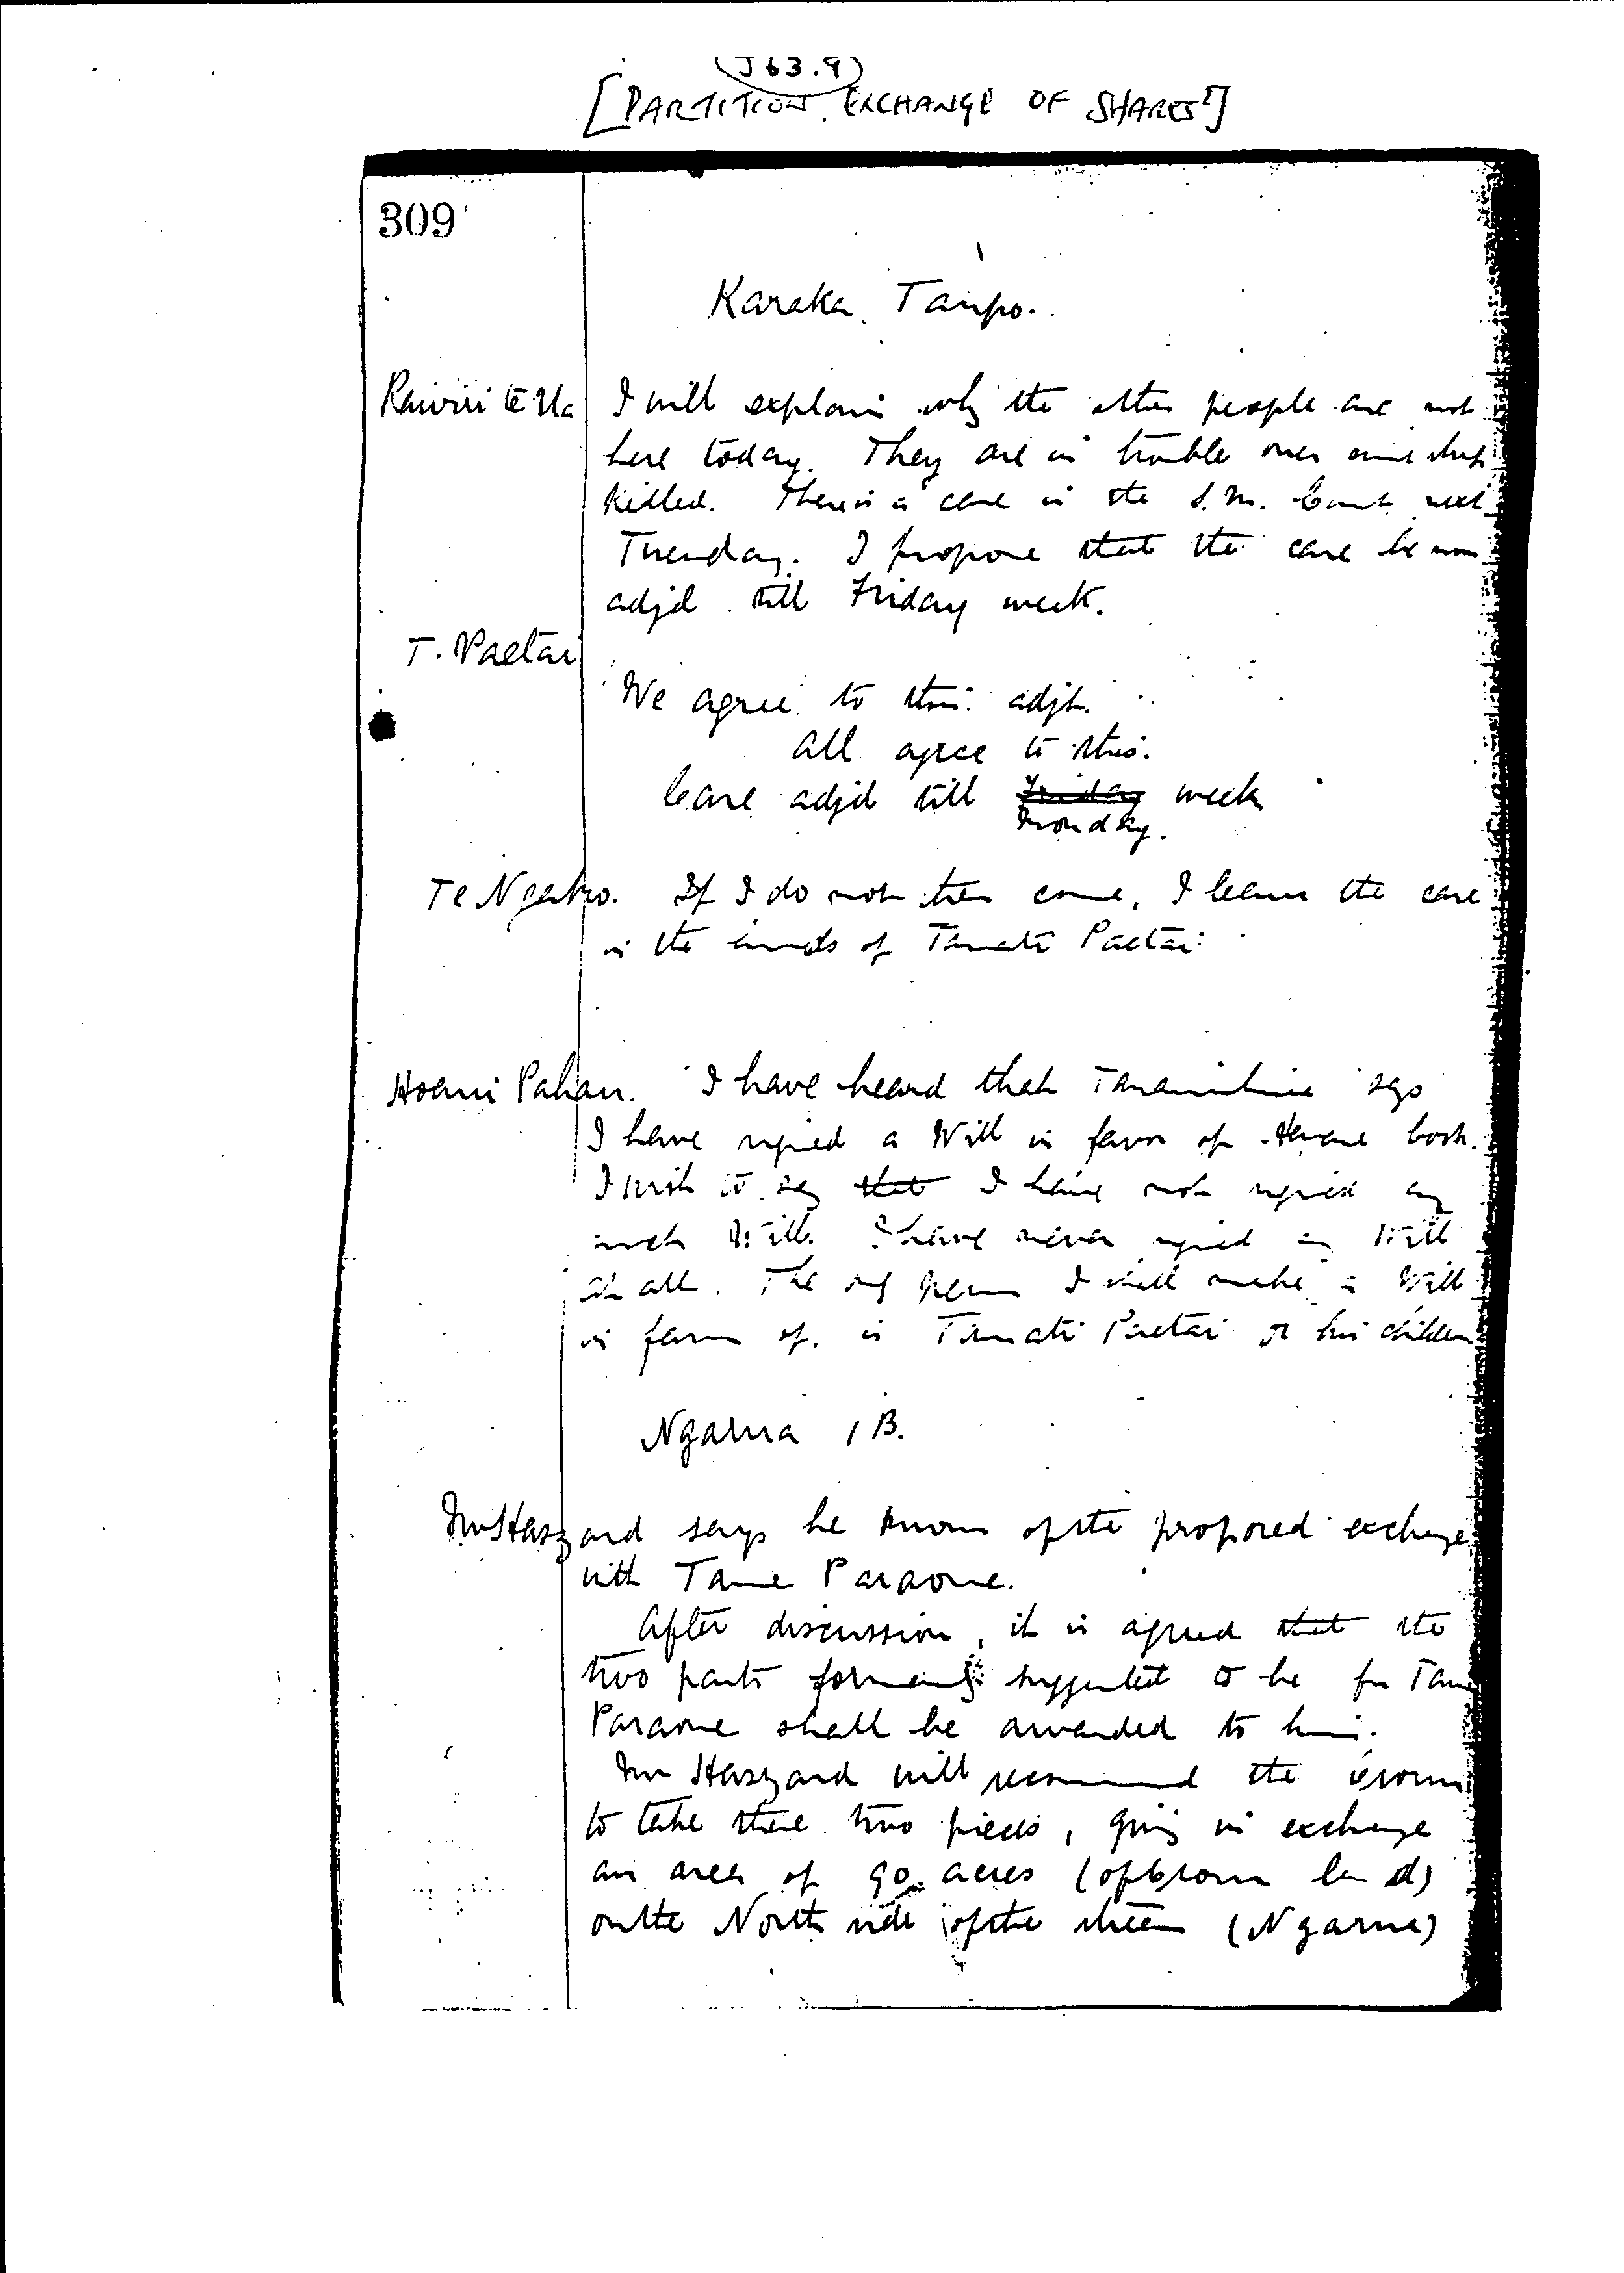 (J63.9)
[PARTITION. EXCHANGE OF SHARES?]
309
Karaka Taupo.
Rawiri te Ua I will explain why the other people are not
here today. They are in trouble over some sheep
killed. There is a case in the S.M. Court next
Tuesday. I propose that the case be now
adjd till Friday week.
T. Paetai
We agree to this adjt.
All agree to this.
Case adjd till Friday week
Monday.
If I do not then come, I leave the case
in the hands of Tamati Paetai
Hoani Pahau. I have heard that says
I have signed a Will in favor of
I wish to say that I have not signed any
such Will. I have never signed any Will
at all. The only person I shall make a Will
in favor of, is Tamati Paetai or his children
Ngarua 1B.
Mr Haszard says he knows of the proposed exchange
with Tame Paraone.
After discussion, it is agreed that the
two parts formerly suggested to be for Tame
Paraone shall be awarded to him.
Mr Haszard will recommend the Crown
to take these two pieces, giving in exchange
an area of 90 acres (of Crown land)
on the North side of the stream (Ngarua)